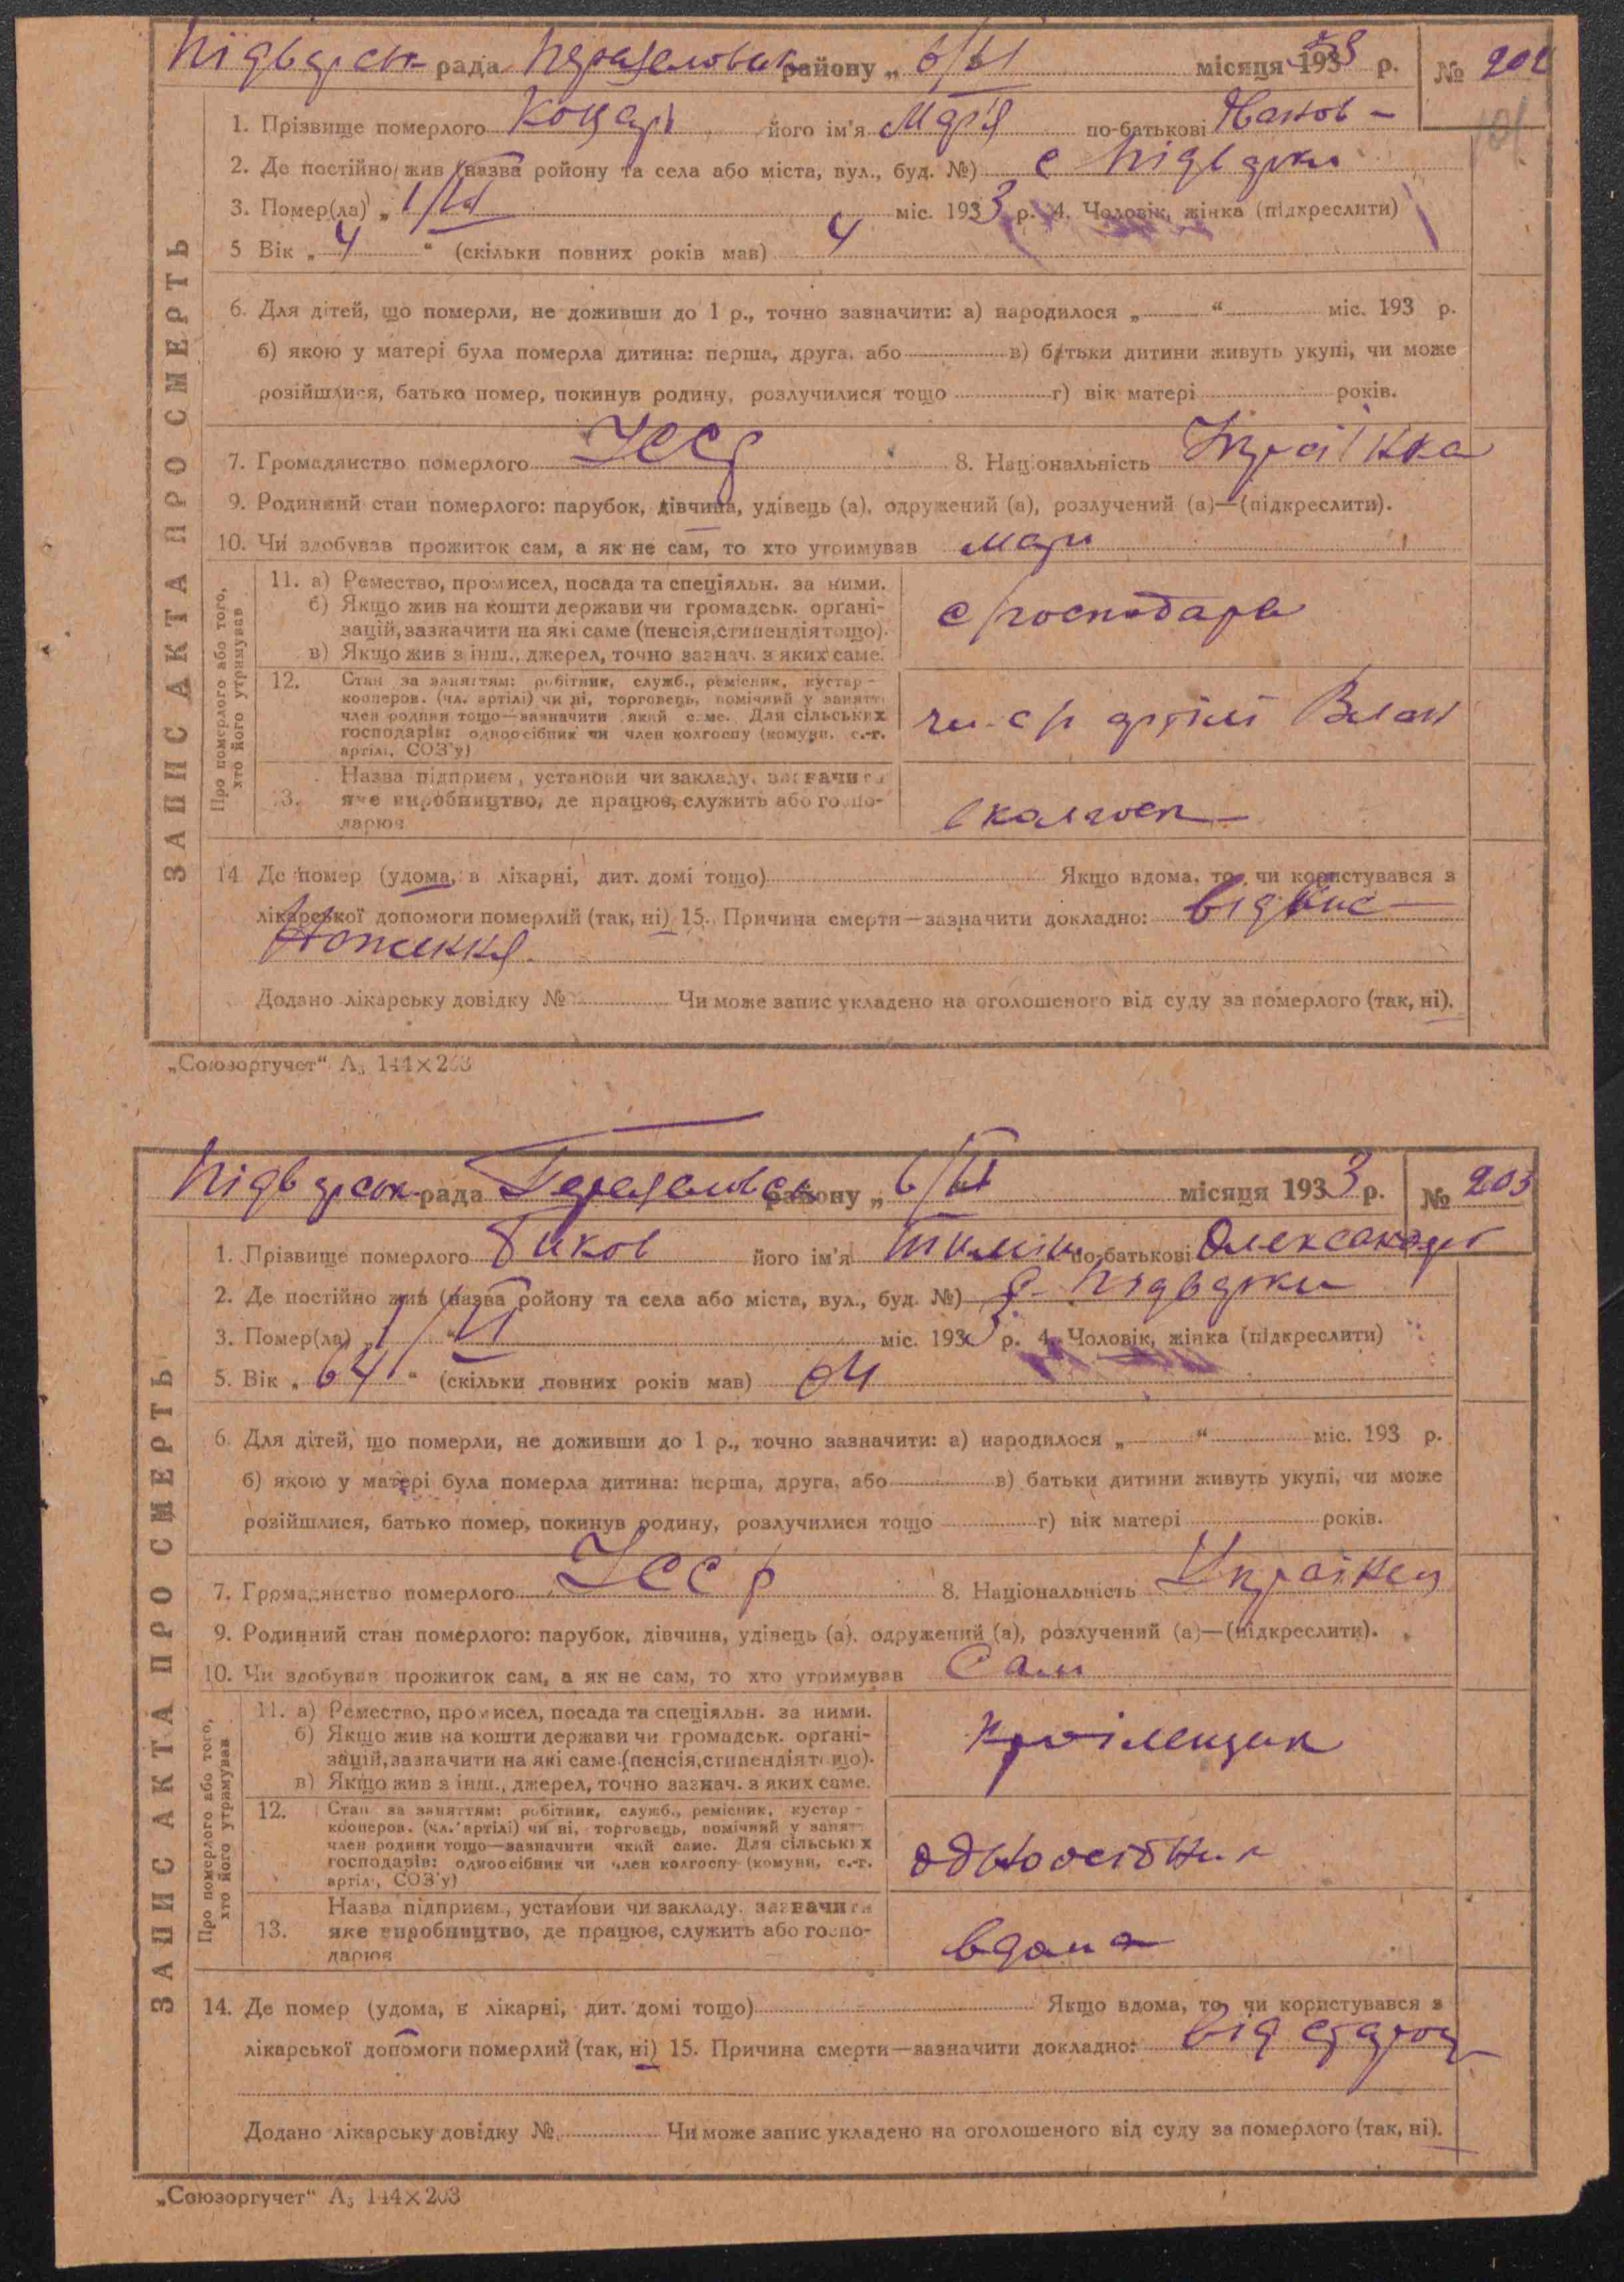 Підварськ рада Переяславськ району „ 6/VI місяця 1933 р. № 202
101
1. Прізвище померлого Коцарь його ім'я Марія по-батькові
2. Де постійно жив (назва ройону та села або міста, вул., буд. №) с Підварки
3. Помер(ла) „ 1/VI міс. 1933 р. 4. Чоловік, жінка (підкреслити)
5 Вік „ 4 “ (скільки повних років мав) 4
6. Для дітей, що померли, не доживши до 1 р., точно зазначити: а) народилося „ “ міс. 193 р.
б) якою у матері була померла дитина: перша, друга, або в) батьки дитини живуть укупі, чи може
розійшлися, батько помер, покинув родину, розлучилися тощо г) вік матері років.
7. Громадянство померлого УССР 8. Національність Українка
9. Родинний стан померлого: парубок, дівчина, удівець (а), одружений (а), розлучений (а)—(підкреслити).
10. Чи здобував прожиток сам, а як не сам, то хто утримував мати
ЗАПИС АКТА ПРО СМЕРТЬ
Про померлого або того,
хто його утримував
11. а) Ремество, промисел, посада та спеціяльн. за ними.
б) Якщо жив на кошти держави чи громадськ. органі-
зацій, зазначити на які саме (пенсія, стипендія тощо).
в) Якщо жив з інш., джерел, точно зазнач. з яких саме.
с/господарь
12. Стан за заняттям: робітник, служб., ремісник, кустар-
кооперов. (чл. артілі) чи ні, торговець, помічний у занятт.
член родини тощо—зазначити який саме. Для сільських
господарів: одноосібник чи член колгоспу (комуни, с.-г.
артілі, СОЗ'у)
чл. с/г артілі
13. Назва підприєм., установи чи закладу, зазначити
яке виробництво, де працює, служить або госпо-
дарює
в колгосп
14 Де помер (удома, в лікарні, дит. домі тощо) Якщо вдома, то чи користувався з
лікарської допомоги померлий (так, ні) 15. Причина смерти—зазначити докладно: від вис-
наження
Додано лікарську довідку № Чи може запис укладено на оголошеного від суду за померлого (так, ні).
„Союзоргучет“ А₅ 144×203
Підварськ рада Переяславськ району „ 6/VI місяця 1933 р. № 203
1. Прізвище померлого Биков його ім'я Тиміш по-батькові Олександр
2. Де постійно жив (назва ройону та села або міста, вул., буд. №) с. Підварки
3. Помер(ла) „ 1/VI міс. 1933 р. 4. Чоловік, жінка (підкреслити)
5. Вік „ 64 “ (скільки повних років мав) 64
6. Для дітей, що померли, не доживши до 1 р., точно зазначити: а) народилося „ “ міс. 193 р.
б) якою у матері була померла дитина: перша, друга, або в) батьки дитини живуть укупі, чи може
розійшлися, батько помер, покинув родину, розлучилися тощо г) вік матері років.
7. Громадянство померлого УССР 8. Національність Українец
9. Родинний стан померлого: парубок, дівчина, удівець (а), одружений (а), розлучений (а)—(підкреслити).
10. Чи здобував прожиток сам, а як не сам, то хто утримував Сам
ЗАПИС АКТА ПРО СМЕРТЬ
Про померлого або того,
хто його утримував
11. а) Ремество, промисел, посада та спеціяльн. за ними.
б) Якщо жив на кошти держави чи громадськ. органі-
зацій, зазначити на які саме (пенсія, стипендія тощо).
в) Якщо жив з інш., джерел, точно зазнач. з яких саме.
12. Стан за заняттям: робітник, служб., ремісник, кустар-
кооперов. (чл. артілі) чи ні, торговець, помічний у занятт.
член родини тощо—зазначити який саме. Для сільських
господарів: одноосібник чи член колгоспу (комуни, с.-г.
артілі, СОЗ'у)
одноосібник
13. Назва підприєм., установи чи закладу, зазначити
яке виробництво, де працює, служить або госпо-
дарює
вдома
14. Де помер (удома, в лікарні, дит. домі тощо) Якщо вдома, то чи користувався з
лікарської допомоги померлий (так, ні) 15. Причина смерти—зазначити докладно: від старощ
Додано лікарську довідку № Чи може запис укладено на оголошеного від суду за померлого (так, ні).
„Союзоргучет“ А₅ 144×203